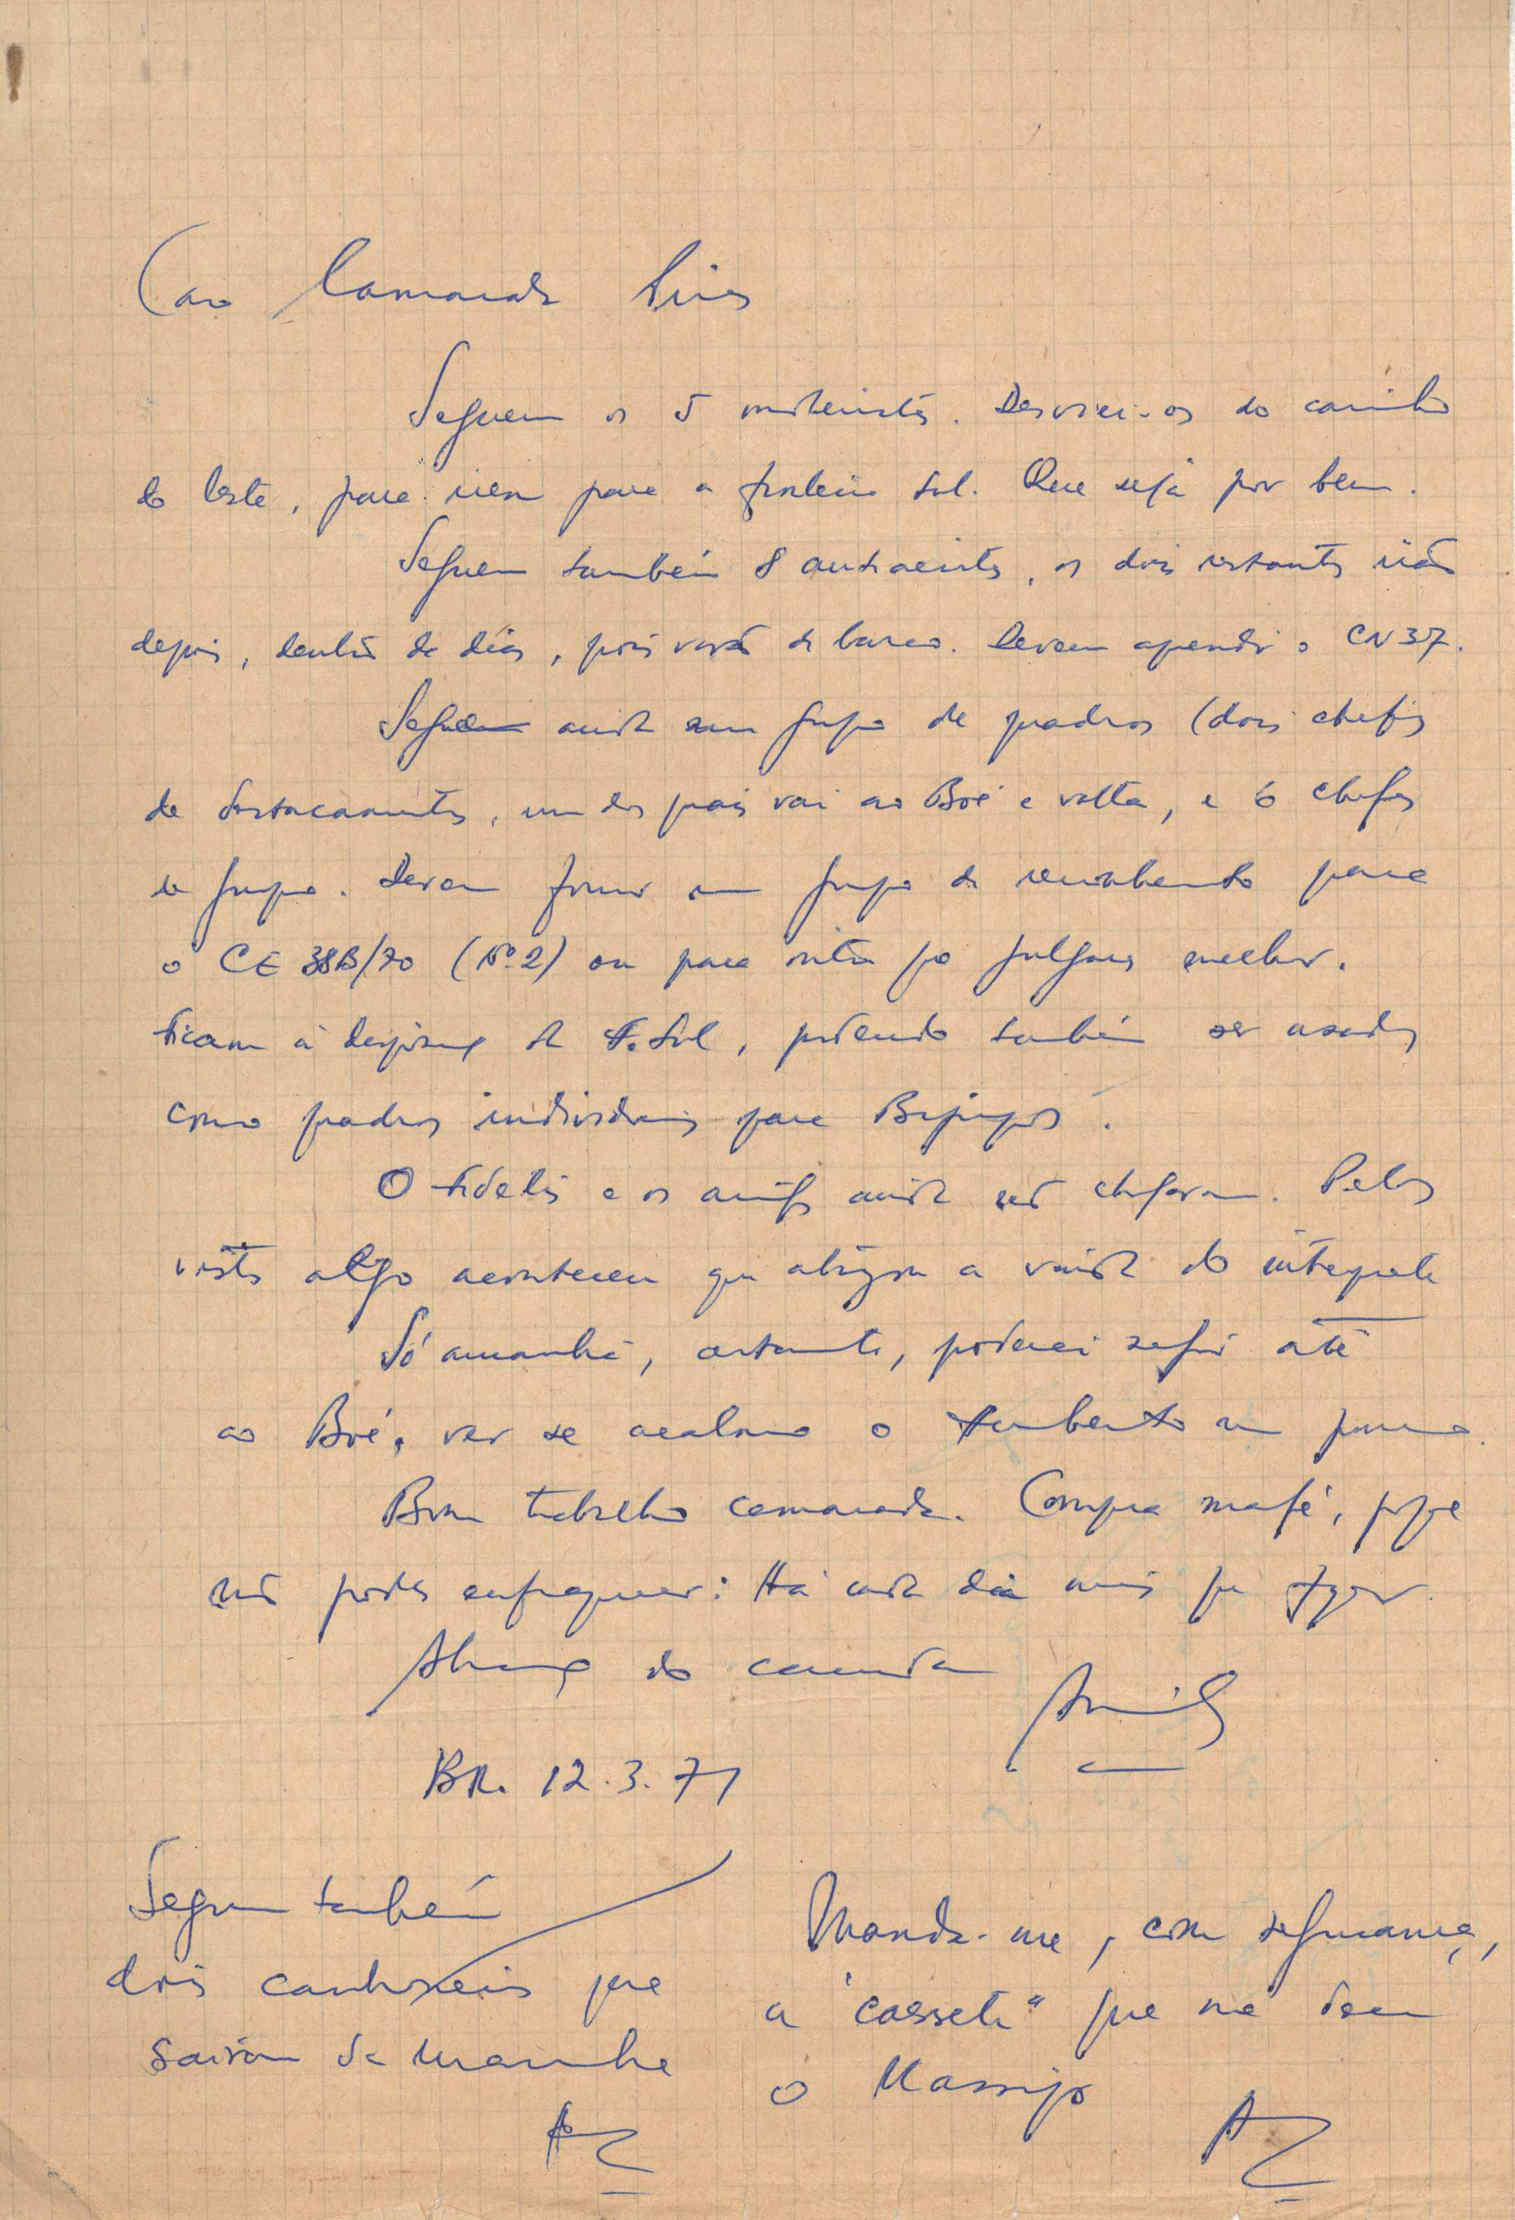 Caro Camarada Pires
Seguem os 5 morteiristas. Desviei-os do caminho
do Leste, para irem para a fronteira Sul. Que seja por bem.
Seguem também 8 os dois restantes irão
depois, dentro de dias, pois vão de barco. Devem aprender o CN 37.
Seguem ainda um grupo de quadros (dois chefes
de destacamentos, um dos quais vai ao Boé e volta, e 6 chefes
de grupo. Devem formar um grupo de para
o CE 38B/70 (Nº 2) ou para outra que julgares melhor.
Ficam à disposição da F. Sul, podendo também ser usados
como quadros individuais para
O Fidelis e os amigos ainda não chegaram. Pelos
vistos algo aconteceu que obrigou a vinda do intérprete
Só amanhã, certamente, poderei seguir até
ao Boé, ver se acalmo o um pouco.
Bom trabalho camarada. Compra mafé, porque
não podes enfraquecer: Há cada dia mais que fazer.
Abraço do camarada
Amílcar
BR. 12.3.71
Seguem também
dois canhoneiros que
saíram da marinha
A
Manda-me, com segurança,
a "cassete" que me deu
o
A